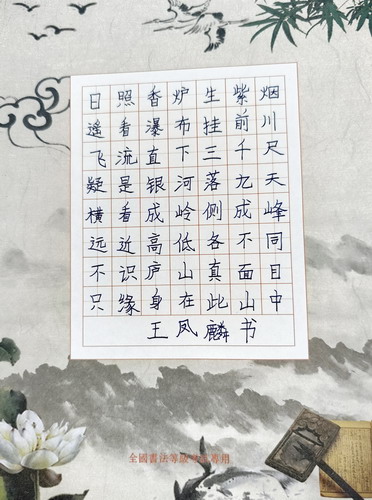 日照香炉生紫烟
遥看瀑布挂前川
飞流直下三千尺
疑是银河落九天
横看成岭侧成峰
远近高低各不同
不识庐山真面目
只缘身在此山中
王凤麟书
全國書法等級考試專用